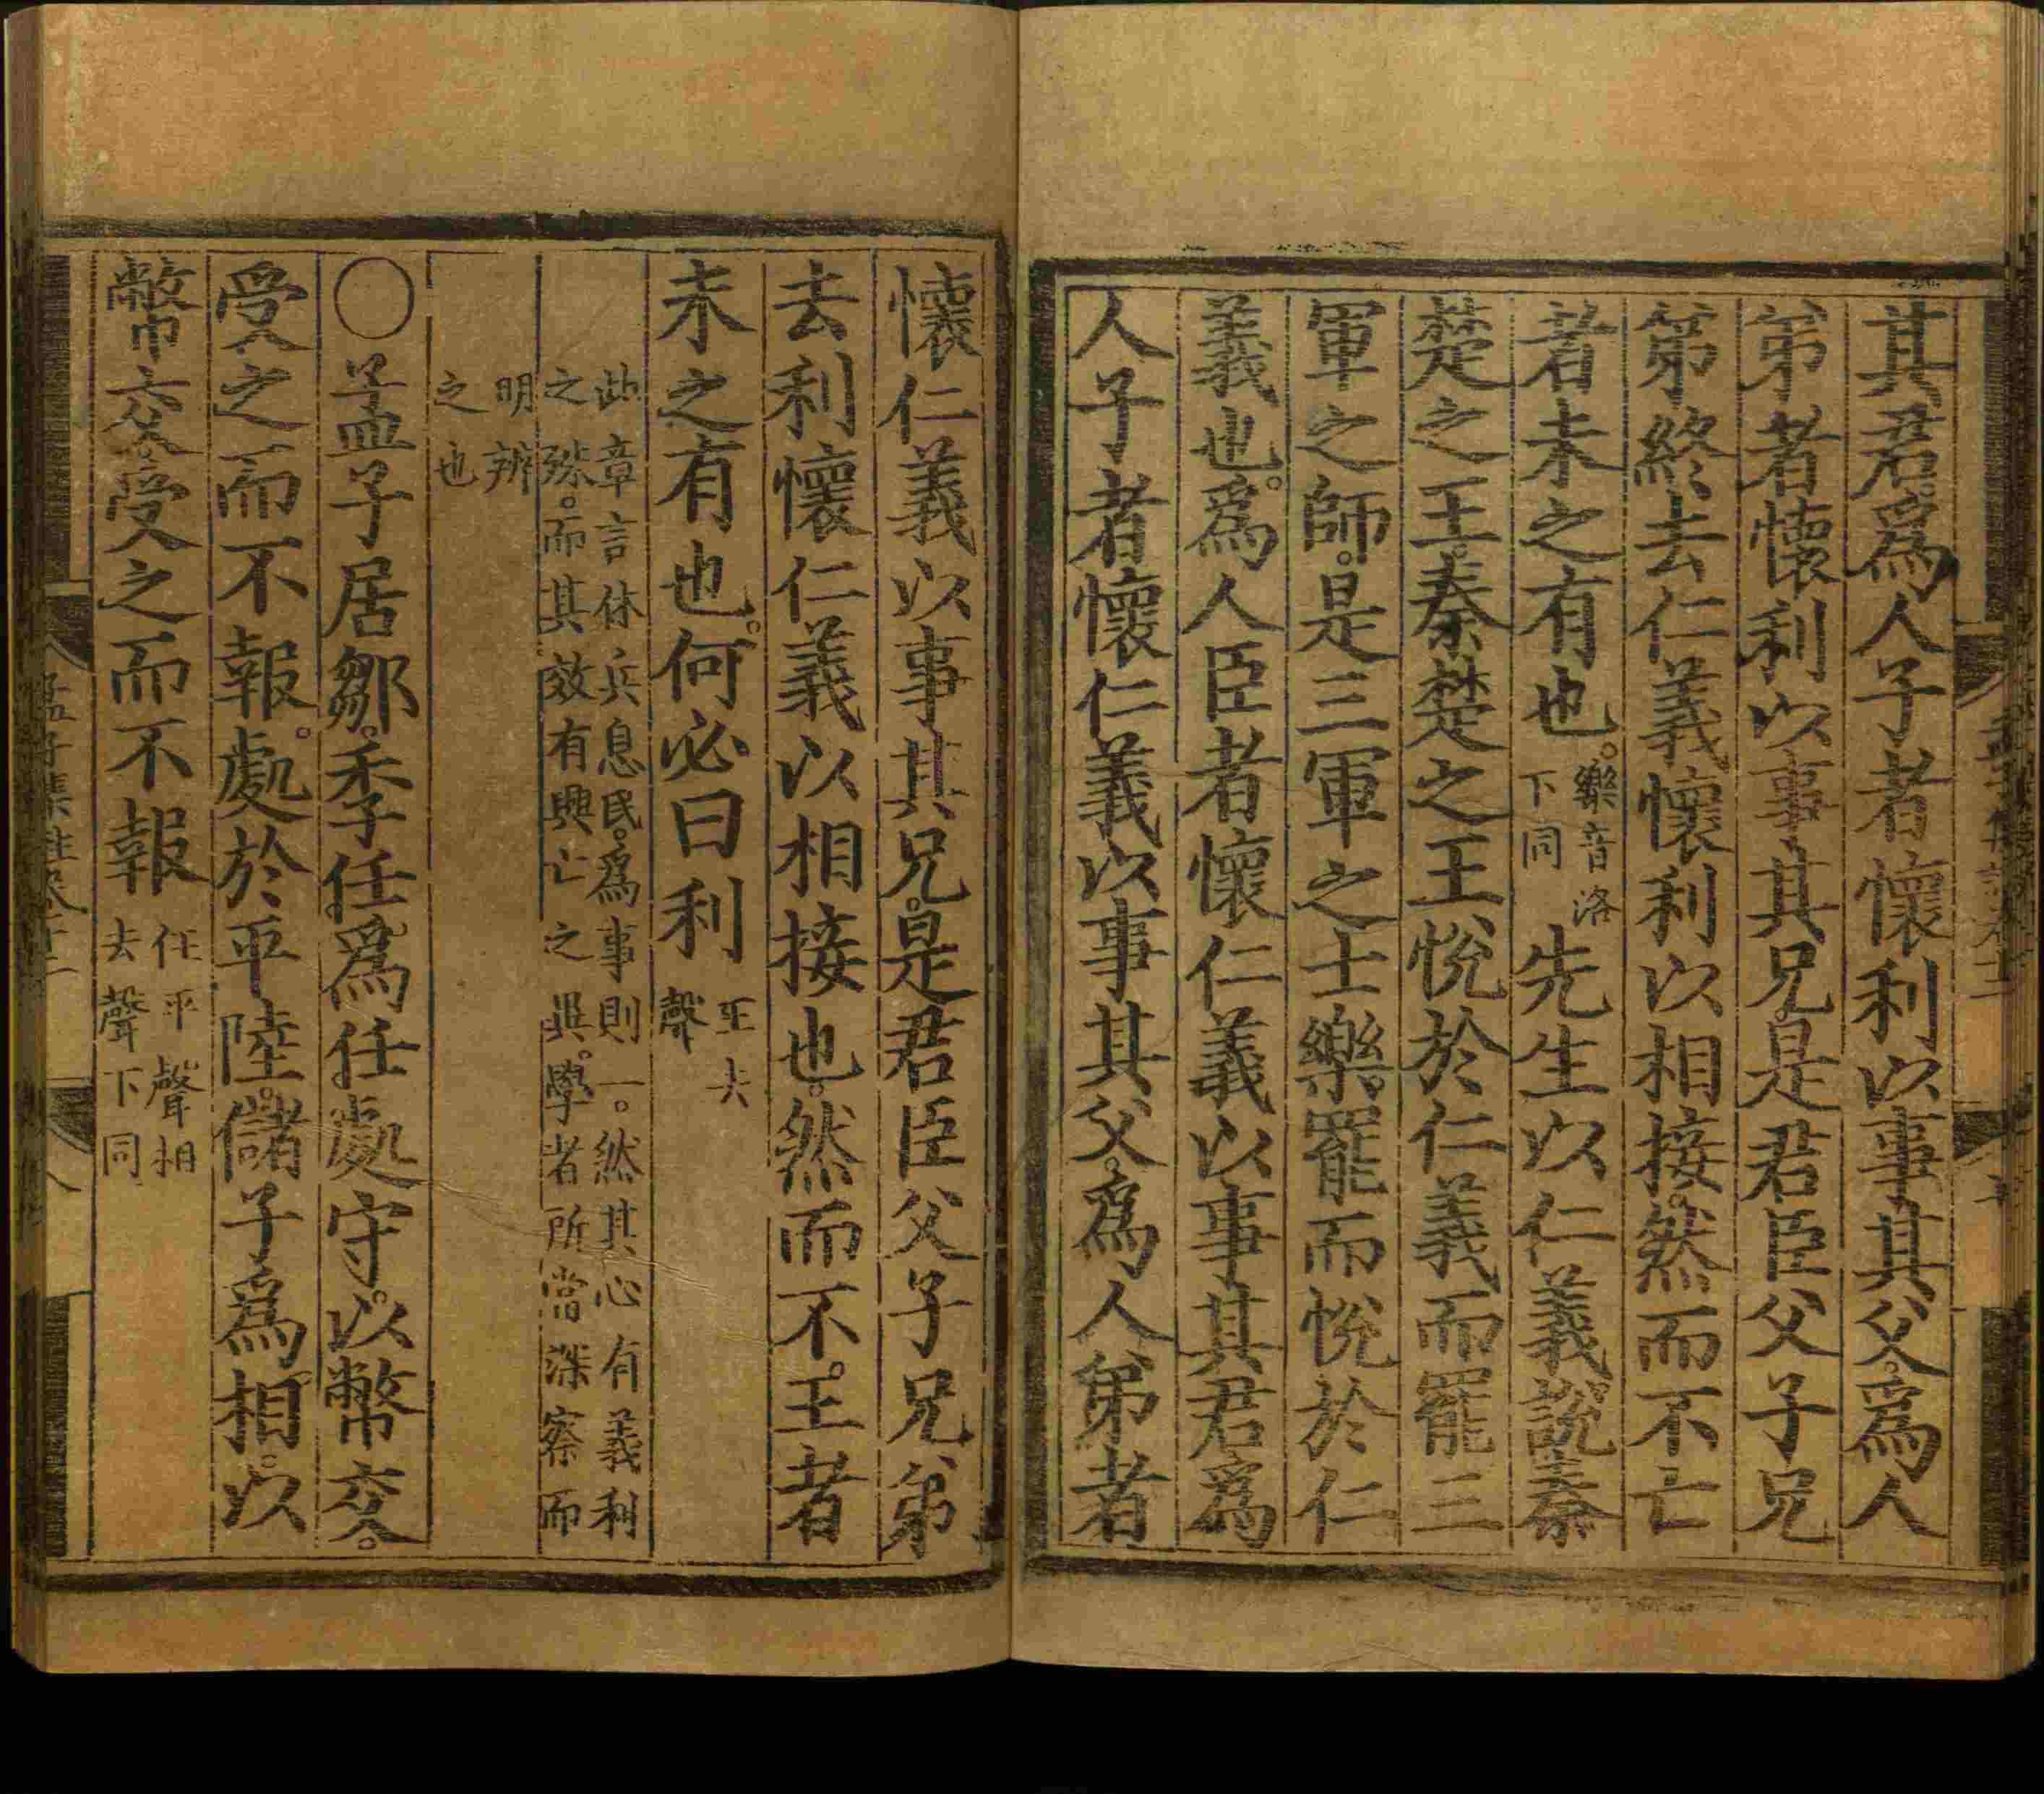 其君。爲人子者懷利以事其父。爲人
弟者懷利以事其兄。是君臣父子兄
弟終去仁義。懷利以相接。然而不亡
者未之有也。樂音洛下同先生以仁義。說秦
楚之王。秦楚之王悅於仁義而罷三
軍之師。是三軍之士樂。罷而悅於仁
義也。爲人臣者懷仁義以事其君。爲
人子者懷仁義以事其父。爲人弟者
懷仁義以事其兄。是君臣父子兄弟
去利懷仁義以相接也。然而不。王者
未之有也。何必曰利王去聲
此章言休兵息民。爲事則一。然其心有義利
之殊。而其效有興亡之異。學者所當深察而
明辨
之也
〇孟子居鄒。季任。爲任處守。以幣交。
受之而不報。處於平陸。儲子爲相。以
幣交。受之而不報任平聲相去聲下同
孟子集註卷十二
八